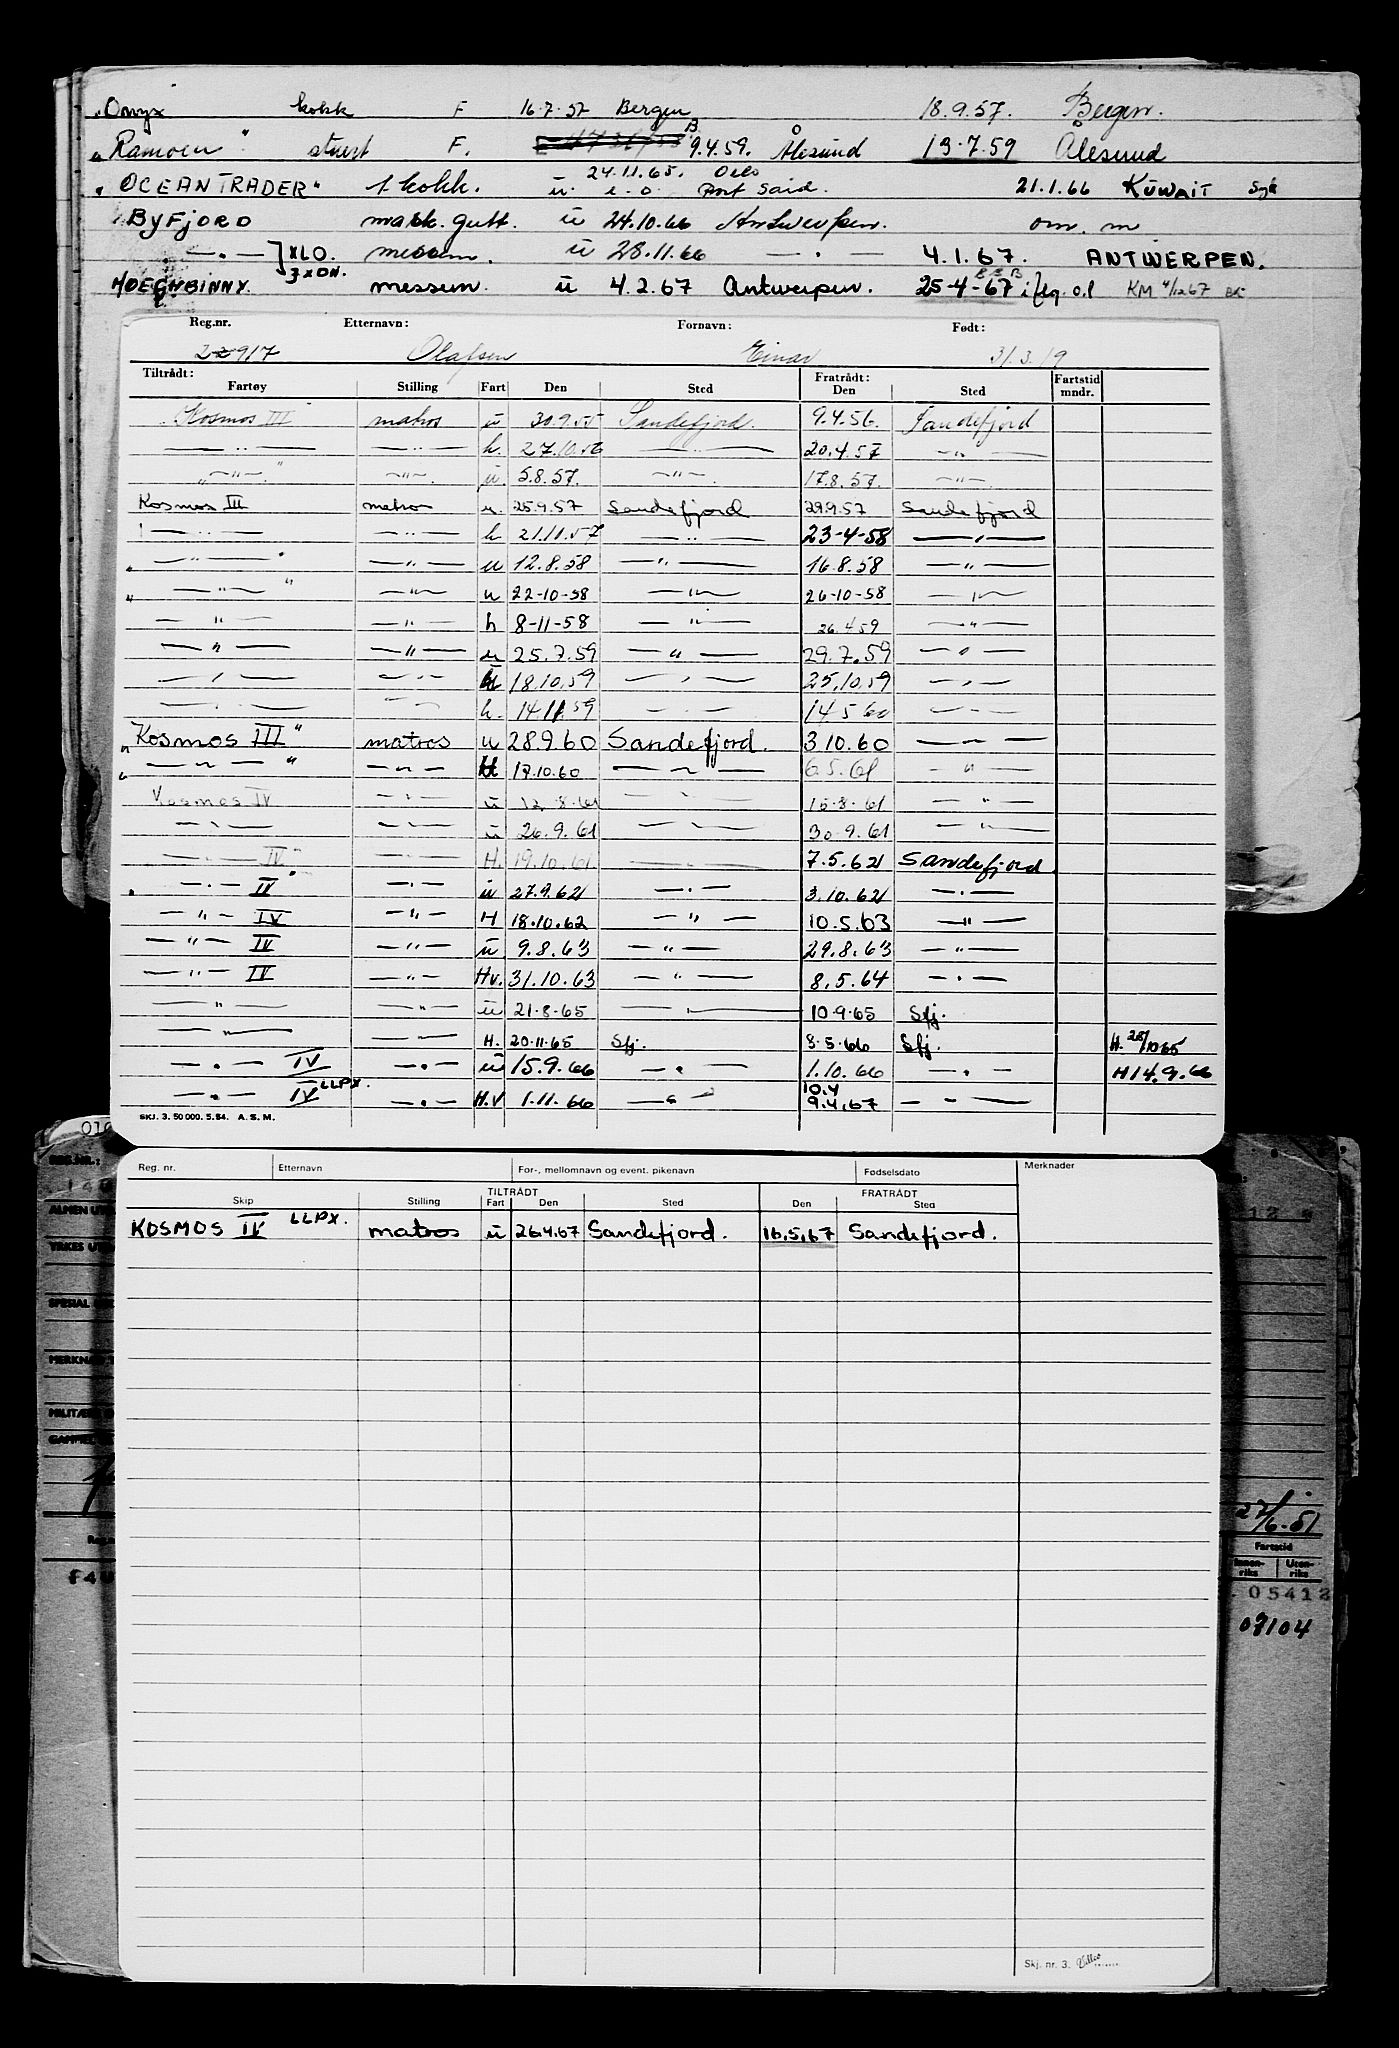 "Onyx kokk F 16.7.57 Bergen 18.9.57. Bergen.
"Ramoen" stuert F. 9.4.59. B Ålesund 13.7.59 Ålesund
24.11.65. Oslo
"OCEANTRADER" 1 kokk. u. i.o. Port Said. 21.1.66 KUWAIT Syk
BYFJORD mask. gutt. u 24.10.66 Antwerpen. om. m
— " — } XLO. messm. u 28.11.66 — " — 4.1.67. ANTWERPEN.
HOEGHBINNY. messm. u 4.2.67 Antwerpen. 25-4-67 KM 4/1267
Reg.nr. Etternavn: Fornavn: Født:
22917 Olafsen Einar 31.3.19
Tiltrådt: Fratrådt: Fartstid
Fartøy Stilling Fart Den Sted Den Sted mndr.
Kosmos III matros u 30.9.55 Sandefjord. 9.4.56. Sandefjord
— " — — " — h. 27.10.56 — " — 20.4.57 — " —
— " — — " — u. 5.8.57. — " — 17.8.57. — " —
Kosmos III matros u 25.9.57 Sandefjord 29.9.57 Sandefjord
— " — — " — h 21.11.57 — " — 23-4-58 — " —
— " — — " — u 12.8.58 — " — 16.8.58 — " —
— " — — " — u 22-10-58 — " — 26-10-58 — " —
— " — — " — h 8-11-58 — " — 26.4.59 — " —
— " — — " — u 25.7.59 — " — 29.7.59 — " —
— " — — " — u 18.10.59 — " — 25.10.59 — " —
— " — — " — h. 14.11.59 — " — 14.5.60 — " —
"Kosmos III" matros u 28.9.60 Sandefjord. 3.10.60 — " —
— " — — " — H 17.10.60 — " — 6.5.61 — " —
Kosmos IV — " — u 12.8.61 — " — 15.8.61 — " —
— " — — " — u 26.9.61 — " — 30.9.61 — " —
— " — IV" — " — H. 19.10.61 — " — 7.5.62 Sandefjord.
— " — IV" — " — u 27.9.62 — " — 3.10.62 — " —
— " — IV — " — H 18.10.62 — " — 10.5.63 — " —
— " — IV — " — u 9.8.63 — " — 29.8.63 — " —
— " — IV — " — Hv. 31.10.63 — " — 8.5.64 — " —
— " — — " — u 21.8.65 — " — 10.9.65 Sfj.
— " — — — H. 20.11.65 Sfj. 8.5.66 Sfj. H. 28/1065
— " — IV — " — u 15.9.66 — " — 1.10.66 — " — H14.9.66
— " — IV LLPX. — " — H.V 1.11.66 — " — 10.4 9.4.67 — " —
SKJ. 3. 50 000. 5. 54. A. S. M.
Reg. nr. Etternavn For-, mellomnavn og event. pikenavn Fødselsdato Merknader
TILTRÅDT FRATRÅDT
Skip Stilling Fart Den Sted Den Sted
KOSMOS IV LLPX. matros u 26.4.67 Sandefjord. 16.5.67 Sandefjord.
Skj. nr. 3.
REG.NR.:
MERKNAD
27/6.51
Fartstid
Innen-riks Uten-riks
05412
07104